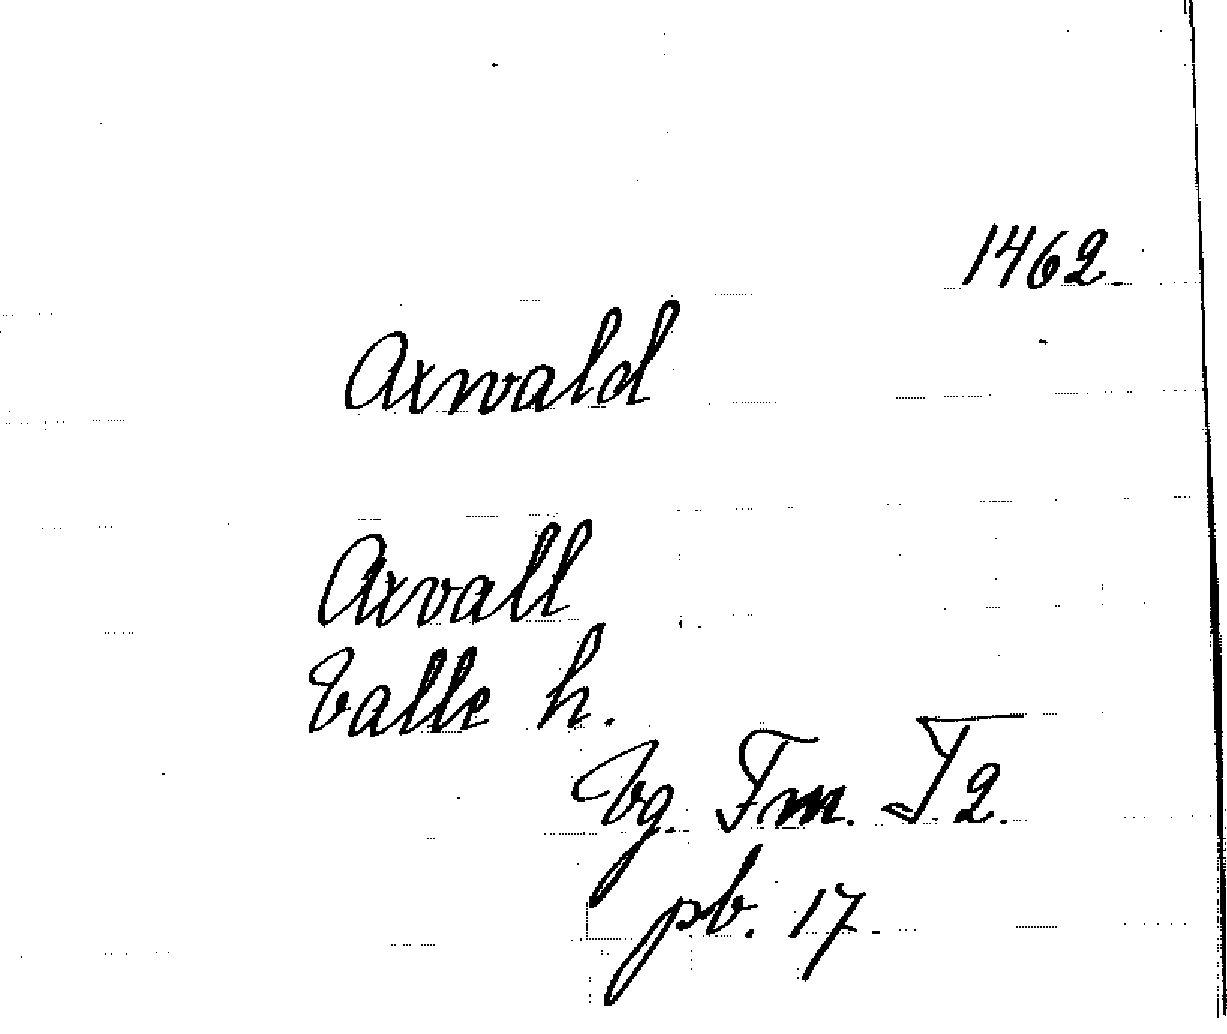 1462.
Axwald
Axvall
Valle h.
Vg. Fm. I 2.
pb. 17.